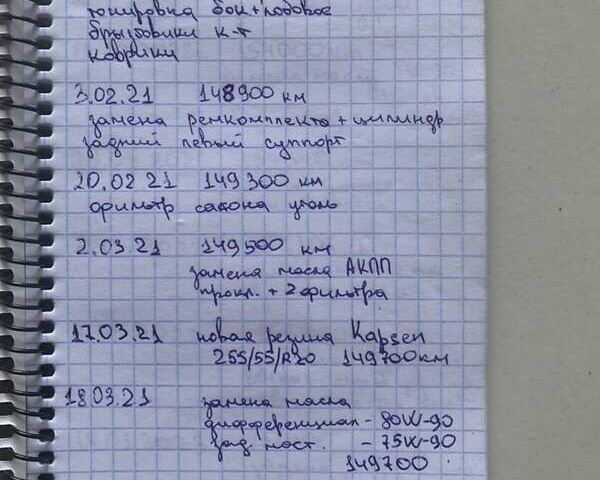 тонировка бок+лобовое
брызговики к-т
коврики
3.02.21 148900 км
замена ремкомплекта + цилиндр
задний левый суппорт
20.02 21 149300 км
фильтр салона уголь
2.03.21 149500 км
замена масла АКПП
прокл. + 2 фильтра
17.03.21 новая резина Kapsen
255/55/R20 149700км
18.03.21 замена масла
дифференциал - 80W-90
зад. мост. - 75W-90
149700